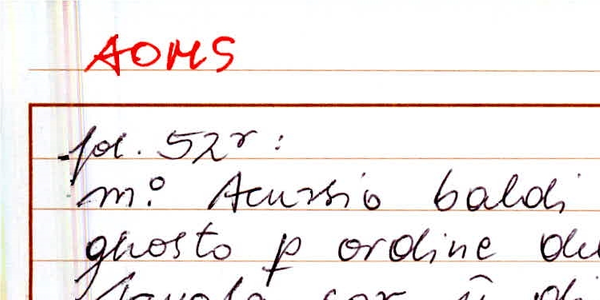 AOMS
fol. 52r:
m:o Acursio baldi
ghosto p ordine del